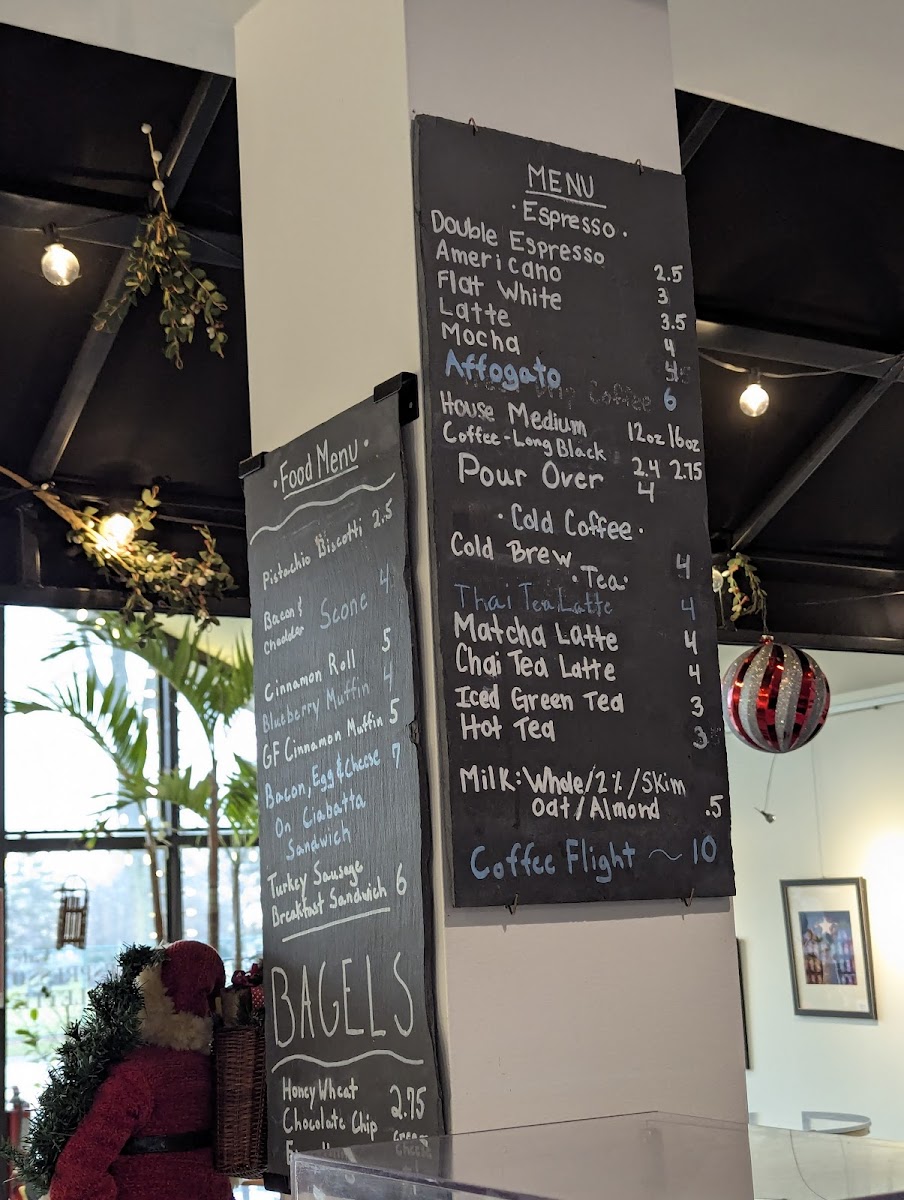 MENU
· Espresso ·
Double Espresso 2.5
Americano 3
Flat White 3.5
Latte 4
Mocha 4.5
Affogato 6
Drip Coffee
House Medium 12oz 16oz
Coffee-Long Black 2.4 2.75
Pour Over 4
· Cold Coffee ·
Cold Brew 4
· Tea ·
Thai Tea Latte 4
Matcha Latte 4
Chai Tea Latte 4
Iced Green Tea 3
Hot Tea 3
Milk: Whole/2%/Skim
Oat/Almond .5
Coffee Flight ~ 10
· Food Menu ·
Pistachio Biscotti 2.5
Bacon &
Cheddar Scone 4
Cinnamon Roll 5
Blueberry Muffin 4
GF Cinnamon Muffin 5
Bacon, Egg & Cheese 7
On Ciabatta
Sandwich
Turkey Sausage
Breakfast Sandwich 6
BAGELS
Honey Wheat 2.75
Chocolate Chip
cream
cheese